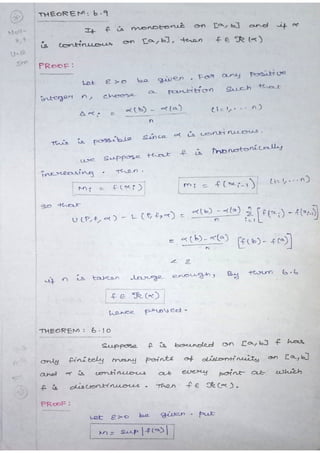 THEOREM: 6.9
If f is monotonic on [a,b] and if α
is continuous on [a,b], then f ∈ R(α)
PROOF:
Let ε>0 be given. For any positive
integer n, choose a partition such that
Δαi = α(b) - α(a) / n (i=1,...n)
This is possible since α is continuous.
we suppose that f is monotonically
increasing. Then.
Mi = f(xi) mi = f(xi-1) (i=1,...n)
so that
U(P,f,α) - L(P,f,α) = α(b) - α(a) / n Σ i=1 [f(xi) - f(xi-1)]
= α(b) - α(a) / n [f(b) - f(a)]
< ε
if n is taken large enough, By thm 6.6
f ∈ R(α)
hence proved.
THEOREM: 6.10
Suppose f is bounded on [a,b] f has
only finitely many points of discontinuity on [a,b]
and α is continuous at every point at which
f is discontinuous. Then f ∈ R(α).
PROOF:
Let ε>0 be given. put
M = sup |f(x)|